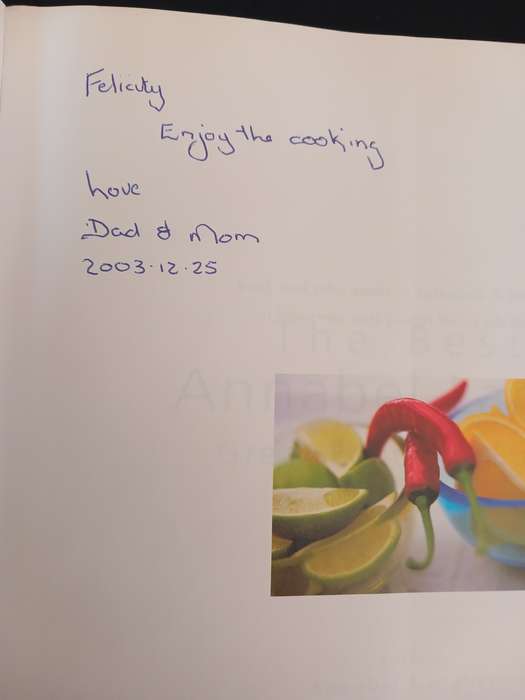 Felicity
Enjoy the cooking
Love
Dad & Mom
2003.12.25
The Best
Annabel